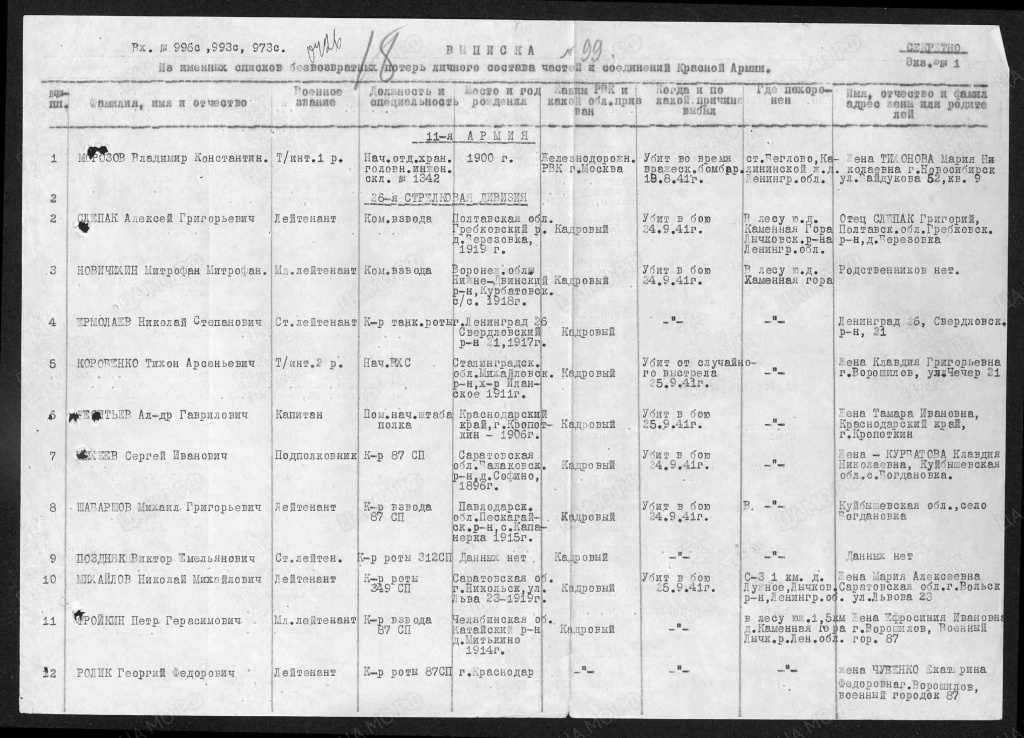 Вх. № 996с ,993с, 973с.
0726
18
ВЫПИСКА
№ 99.
СЕКРЕТНО
Экз.№ 1
Из именных списков безвозвратных потерь личного состава частей и соединений Красной Армии.
№№ пп. Фамилия, имя и отчество Военное звание Должность и специальность Место и год рождения Каким РВК и какой обл.призван Когда и по какой причине выбыл Где похоронен Имя, отчество и фамил адрес жены или родителей
11-я АРМИЯ
1 МОРОЗОВ Владимир Константин. Т/инт.1 р. Нач.отд.хран. 1900 г. Железнодорожн. Убит во время ст.Беглово,Ка- Жена ТИМОНОВА Мария Ни
головн.инжен. РВК г.Москва вражеск.бомбар. лининской ж.д. колаевна г.Новосибирск
скл. № 1342 18.8.41г. Ленингр.обл. ул.Байдукова 52,кв. 9
2 26-я СТРЕЛКОВАЯ ДИВИЗИЯ
2 СЛЕПАК Алексей Григорьевич Лейтенант Ком.взвода Полтавская обл. Убит в бою В лесу ю.д. Отец СЛЕПАК Григорий,
Гребковский р. Кадровый 24.9.41г. Каменная Гора Полтавск.обл.Гребковск.
д.Березовка, Лычковск.р-на р-н,д.Березовка
1919 г. Ленингр.обл.
3 НОВИЧИХИН Митрофан Митрофан. Мл.лейтенант Ком.взвода Воронеж.обл. Убит в бою В лесу ю.д. Родственников нет.
Нижне-Двинский Кадровый 24.9.41г. Каменная гора
р-н,Курбатовск.
с/с. 1918г.
4 ЕРМОЛАЕВ Николай Степанович Ст.лейтенант К-р танк.роты г.Ленинград 26 -"- -"- Ленинград 26, Свердловск.
Свердловский Кадровый р-н, 21
р-н 21,1917г.
5 КОРОБЕНКО Тихон Арсеньевич Т/инт.2 р. Нач.ВХС Сталинградск. Убит от случайно- Жена Клавдия Григорьевна
обл.Михайловск. Кадровый го выстрела -"- г.Ворошилов, ул.Чечер 21
р-н,х-р Илан- 25.9.41г.
ское 1911г.
6 Ал-др Гаврилович Капитан Пом.нач.штаба Краснодарский Убит в бою Жена Тамара Ивановна,
полка край,г.Кропот- Кадровый 25.9.41г. -"- Краснодарский край,
кин - 1906г. г.Кропоткин
7 Сергей Иванович Подполковник К-р 87 СП Саратовская Убит в бою Жена - КУРБАТОВА Клавдия
обл.Балаковск. Кадровый 24.9.41г. -"- Николаевна, Куйбышевская
р-н,д.Софино, обл.с.Богдановка.
1896г.
8 ШАБАРШОВ Михаил Григорьевич Лейтенант К-р взвода Павлодарск. Убит в бою В. -"- Куйбышевская обл.,село
87 СП обл.Пескагай- Кадровый 24.9.41г. Богдановка
ск.р-н,с.Капа-
нерка 1915г.
9 ПОЗДНЯК Виктор Емельянович Ст.лейтен. К-р роты 312СП Данных нет Кадровый -"- -"- Данных нет
10 МИХАЙЛОВ Николай Михайлович Лейтенант К-р роты Саратовская об. Убит в бою С-З 1 км. д. Жена Мария Алексеевна
349 СП г.Никольск,ул. Кадровый 25.9.41г. Лужное,Лычков. Саратовская обл.г.Вольск
Льва 23-1919г. р-н,Ленингр.об. ул.Львова 23
11 ФРОЙКИН Петр Герасимович Мл.лейтенант К-р взвода Челябинская об. в лесу юж.1,5км Жена Ефросиния Ивановна
87 СП Катайский р-н Кадровый -"- д.Каменная гора г.Ворошилов, Военный
д.Митькино Лычк.р.Лен.обл. гор. 87
1914г.
12 РОЛИК Георгий Федорович Лейтенант К-р роты 87СП г.Краснодар -"- -"- -"- жена ЧУБЕНКО Екатерина
Федоровна г.Ворошилов,
военный городок 87